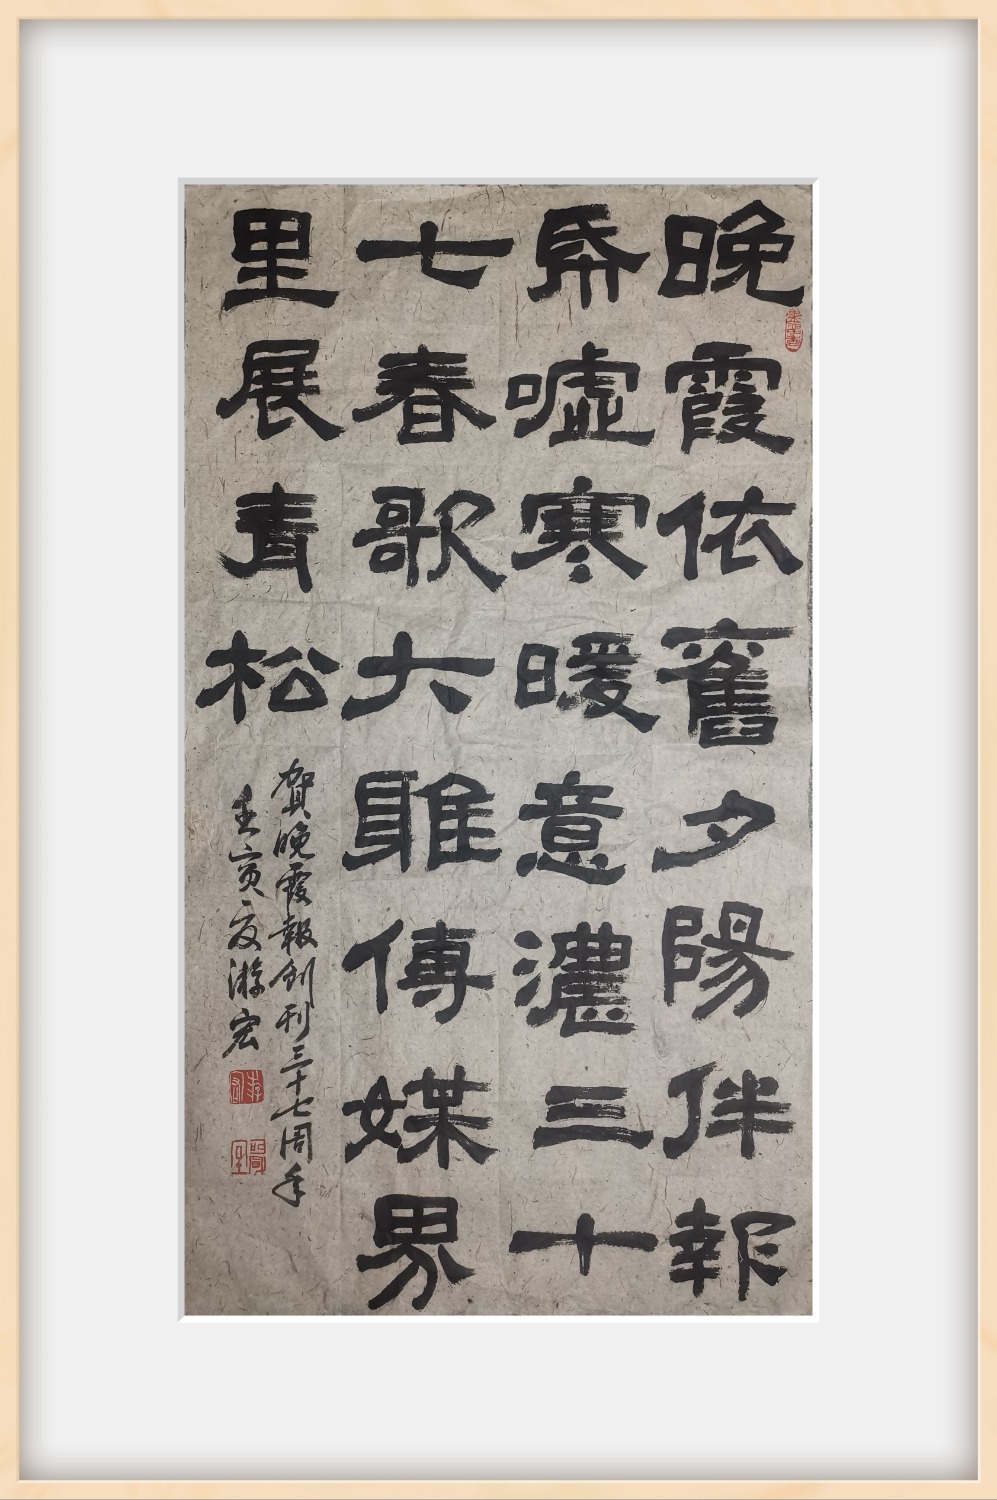 晚霞依舊夕陽伴報
帋噓寒暖意濃三十
七春歌大雅傳媒界
里展青松
賀晚霞報創刊三十七周年
壬寅夏游宏